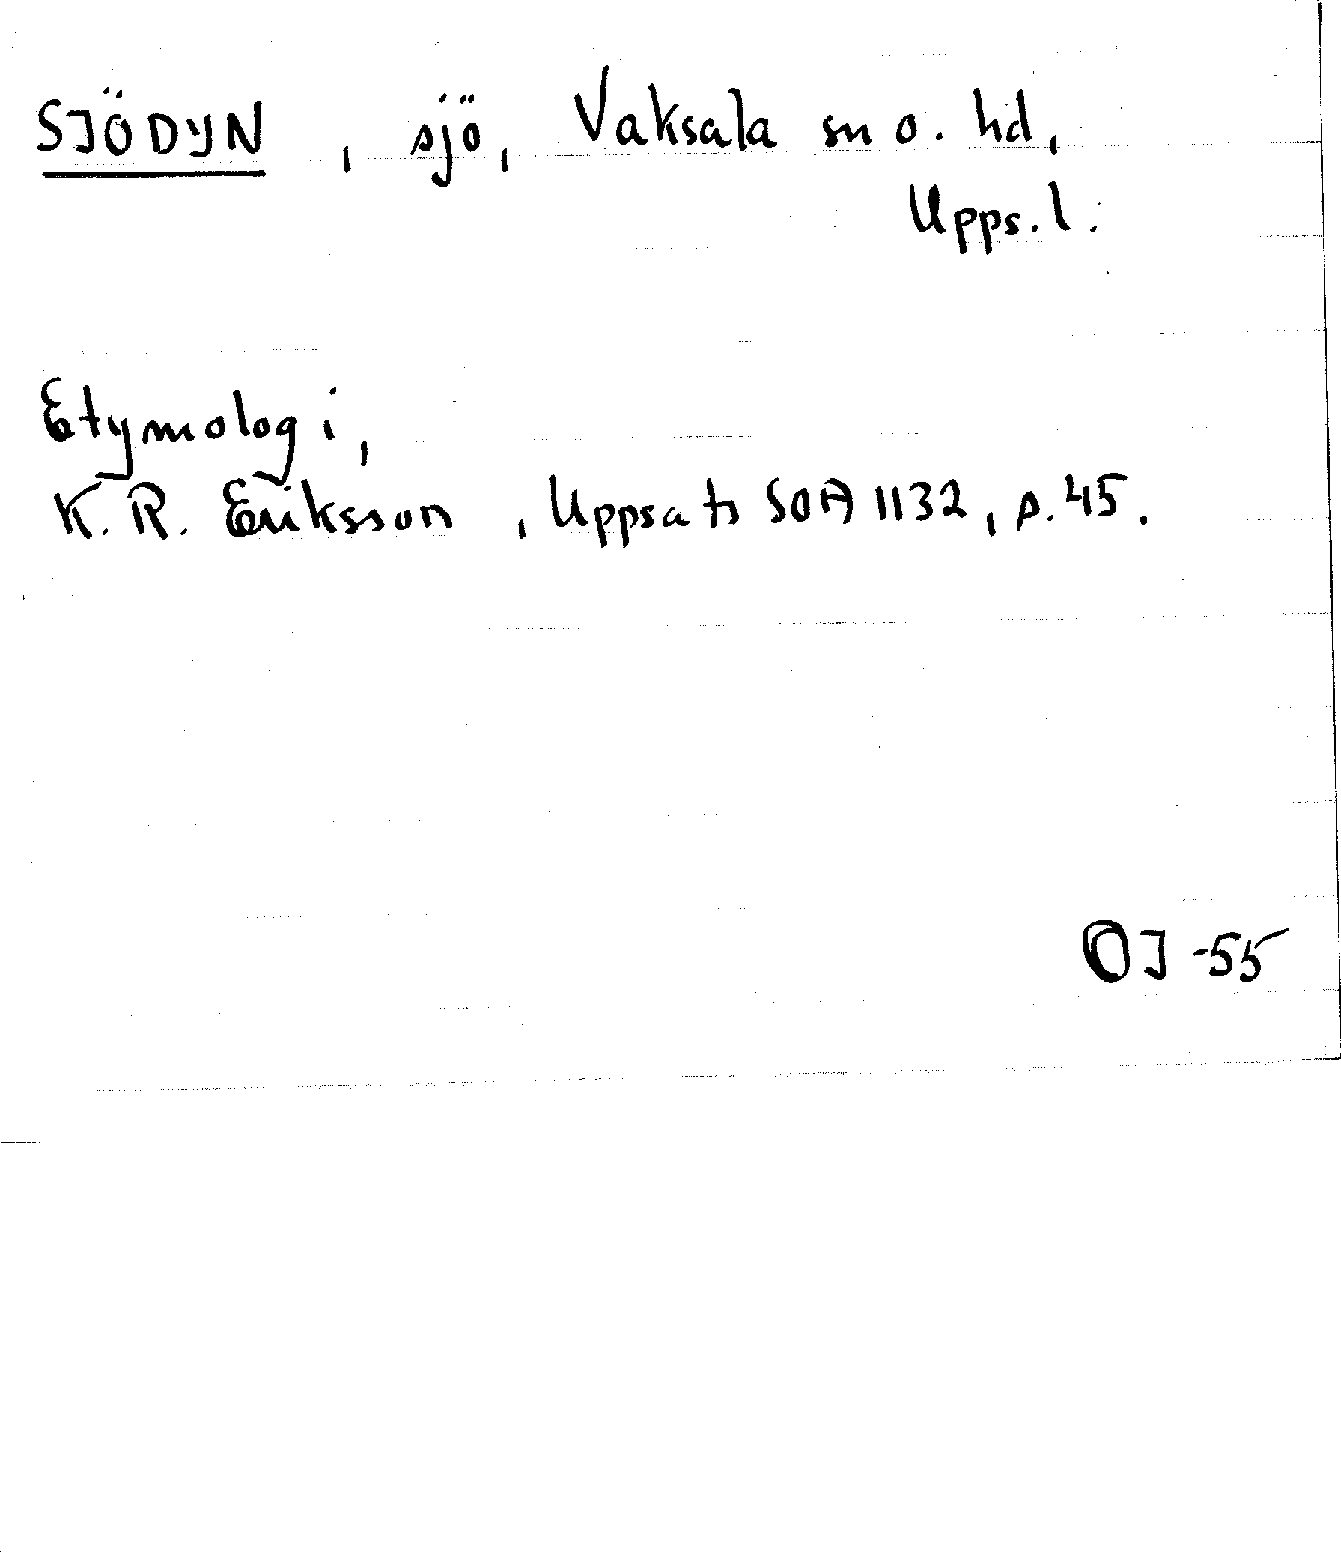 SJÖDYN, sjö, Vaksala sn o. hd,
Upps. l.
Etymologi,
K. R. Eriksson, Uppsats SOA 1132, s. 45.
OJ -55